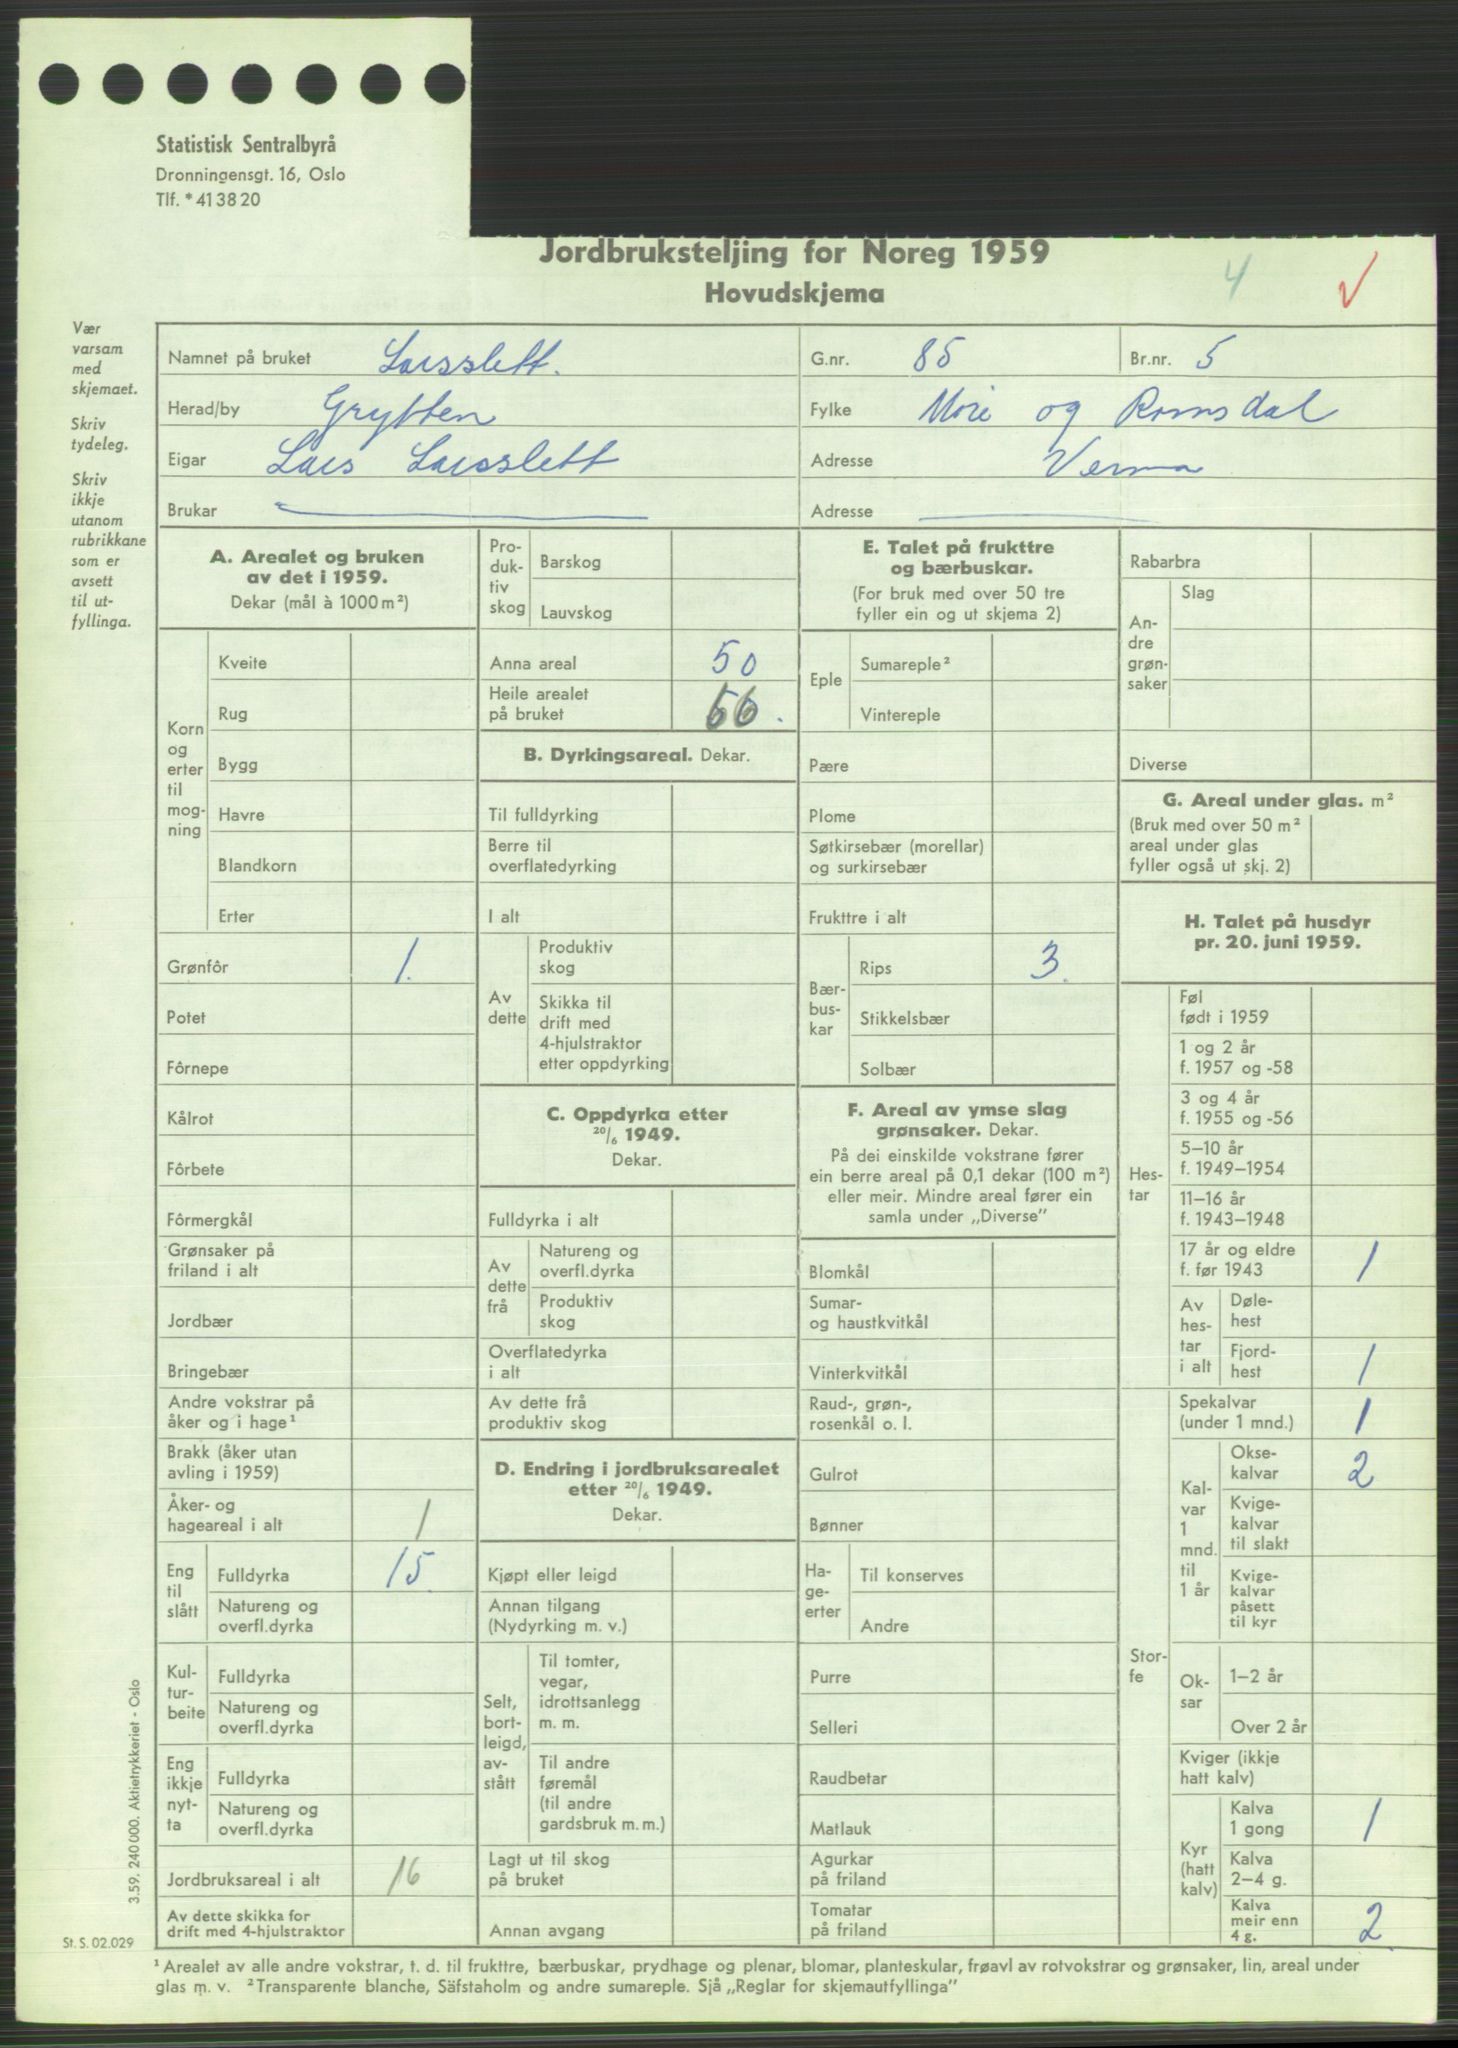 Statistisk Sentralbyrå
Dronningensgt. 16, Oslo
Tlf. * 41 38 20
Jordbruksteljing for Noreg 1959
Hovudskjema
4
Vær
varsam
med
skjemaet.
Skriv
tydeleg.
Skriv
ikkje
utanom
rubrikkane
som er
avsett
til ut-
fyllinga.
Namnet på bruket Larsslett.
G.nr. 85
Br.nr. 5
Herad/by Grytten
Fylke Møre og Romsdal
Eigar Lars Larsslett
Adresse Verma
Brukar
Adresse
A. Arealet og bruken
av det i 1959.
Dekar (mål à 1000 m²)
Korn
og
erter
til
mog-
ning
Kveite
Rug
Bygg
Havre
Blandkorn
Erter
Grønfôr 1.
Potet
Fôrnepe
Kålrot
Fôrbete
Fôrmergkål
Grønsaker på
friland i alt
Jordbær
Bringebær
Andre vokstrar på
åker og i hage¹
Brakk (åker utan
avling i 1959)
Åker- og
hageareal i alt 1
Eng
til
slått
Fulldyrka 15.
Natureng og
overfl.dyrka
Kul-
tur-
beite
Fulldyrka
Natureng og
overfl.dyrka
Eng
ikkje
nyt-
ta
Fulldyrka
Natureng og
overfl.dyrka
Jordbruksareal i alt 16
Av dette skikka for
drift med 4-hjulstraktor
Pro-
duk-
tiv
skog
Barskog
Lauvskog
Anna areal 50
Heile arealet
på bruket 66.
B. Dyrkingsareal. Dekar.
Til fulldyrking
Berre til
overflatedyrking
I alt
Av
dette
Produktiv
skog
Skikka til
drift med
4-hjulstraktor
etter oppdyrking
C. Oppdyrka etter
20/6 1949.
Dekar.
Fulldyrka i alt
Av
dette
frå
Natureng og
overfl.dyrka
Produktiv
skog
Overflatedyrka
i alt
Av dette frå
produktiv skog
D. Endring i jordbruksarealet
etter 20/6 1949.
Dekar.
Kjøpt eller leigd
Annan tilgang
(Nydyrking m. v.)
Selt,
bort-
leigd,
av-
stått
Til tomter,
vegar,
idrottsanlegg
m. m.
Til andre
føremål
(til andre
gardsbruk m. m.)
Lagt ut til skog
på bruket
Annan avgang
E. Talet på frukttre
og bærbuskar.
(For bruk med over 50 tre
fyller ein og ut skjema 2)
Eple
Sumareple²
Vintereple
Pære
Plome
Søtkirsebær (morellar)
og surkirsebær
Frukttre i alt
Bær-
bus-
kar
Rips 3.
Stikkelsbær
Solbær
F. Areal av ymse slag
grønsaker. Dekar.
På dei einskilde vokstrane fører
ein berre areal på 0,1 dekar (100 m²)
eller meir. Mindre areal fører ein
samla under „Diverse”
Blomkål
Sumar-
og haustkvitkål
Vinterkvitkål
Raud-, grøn-,
rosenkål o. l.
Gulrot
Bønner
Ha-
ge-
erter
Til konserves
Andre
Purre
Selleri
Raudbetar
Matlauk
Agurkar
på friland
Tomatar
på friland
Rabarbra
An-
dre
grøn-
saker
Slag
Diverse
G. Areal under glas. m²
(Bruk med over 50 m²
areal under glas
fyller også ut skj. 2)
H. Talet på husdyr
pr. 20. juni 1959.
Hes-
tar
Føl
født i 1959
1 og 2 år
f. 1957 og -58
3 og 4 år
f. 1955 og -56
5–10 år
f. 1949–1954
11–16 år
f. 1943–1948
17 år og eldre
f. før 1943 1
Av
hes-
tar
i alt
Døle-
hest
Fjord-
hest 1
Stor-
fe
Spekalvar
(under 1 mnd.) 1
Kal-
var
1
mnd.
til
1 år
Okse-
kalvar 2
Kvige-
kalvar
til slakt
Kvige-
kalvar
påsett
til kyr
Ok-
sar
1–2 år
Over 2 år
Kviger (ikkje
hatt kalv)
Kyr
(hatt
kalv)
Kalva
1 gong 1
Kalva
2–4 g.
Kalva
meir enn
4 g. 2
3.59. 240 000. Aktietrykkeriet - Oslo
St. S. 02.029
¹ Arealet av alle andre vokstrar, t. d. til frukttre, bærbuskar, prydhage og plenar, blomar, planteskular, frøavl av rotvokstrar og grønsaker, lin, areal under
glas m. v. ² Transparente blanche, Säfstaholm og andre sumareple. Sjå „Reglar for skjemautfyllinga”